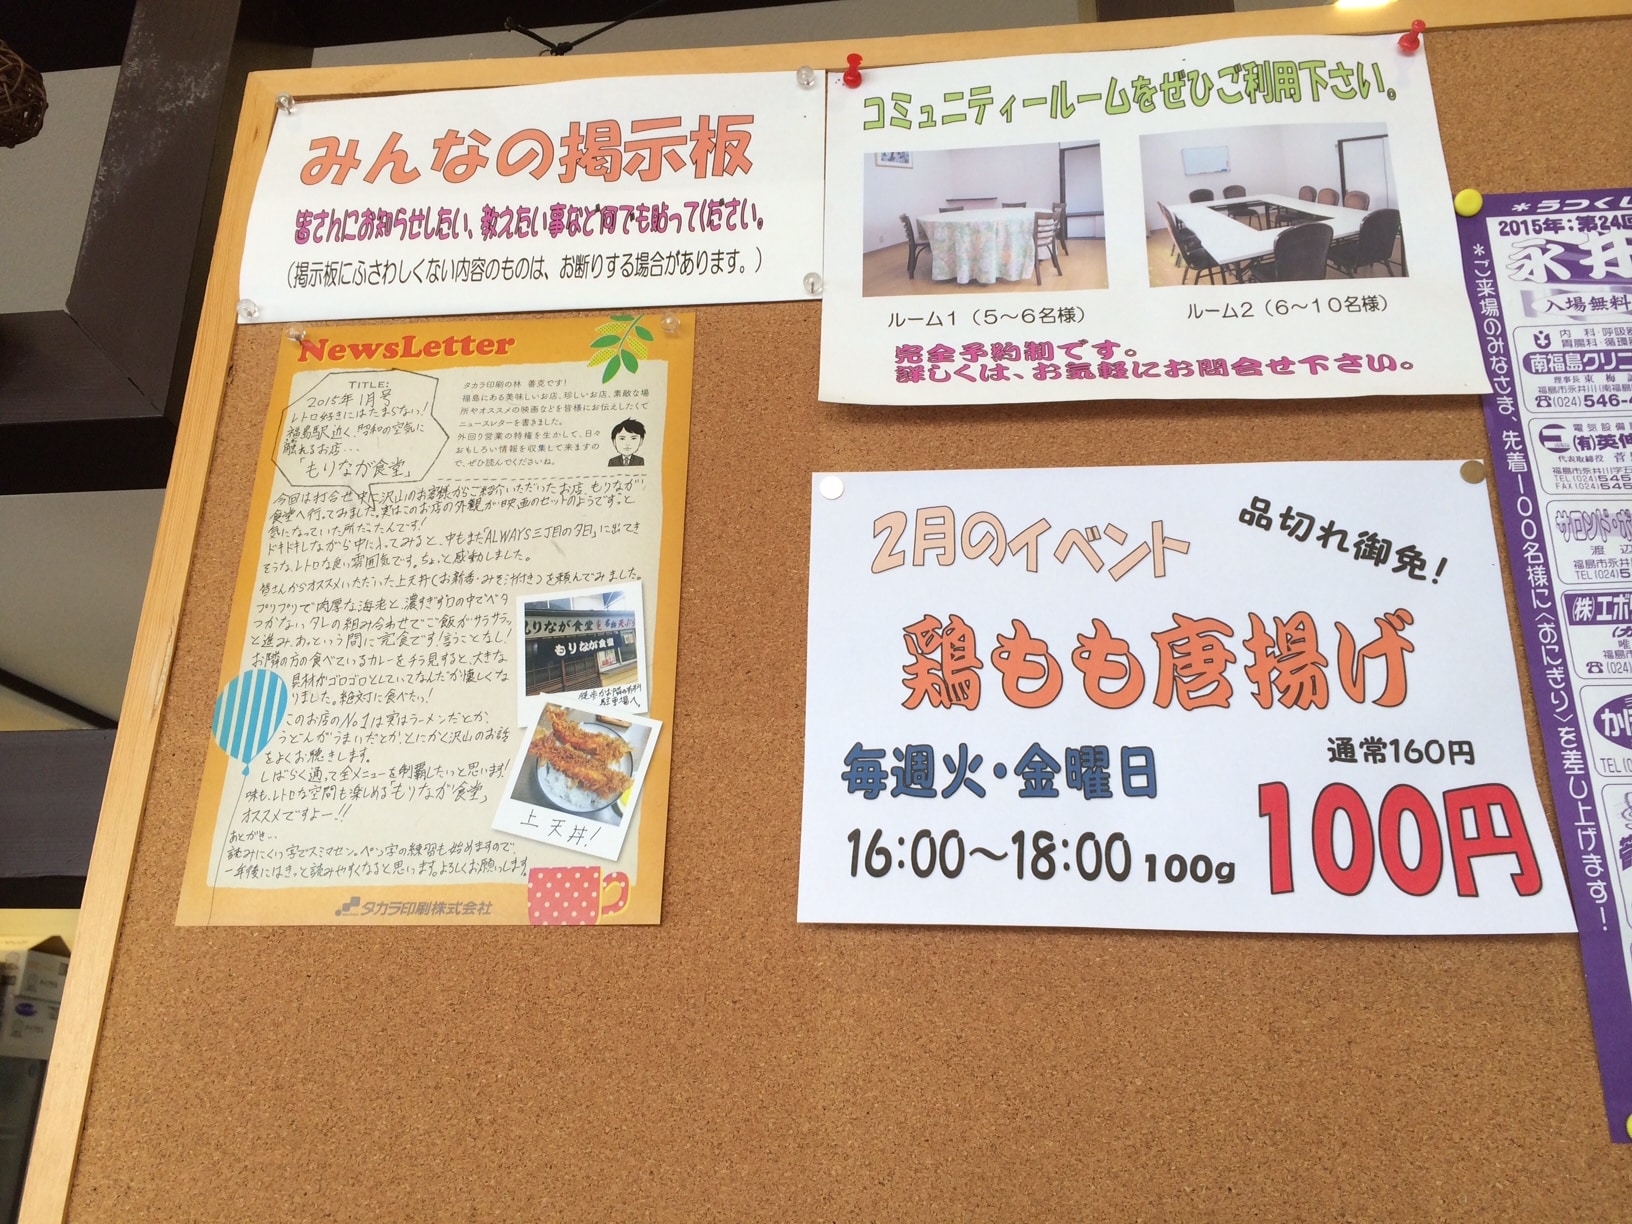 みんなの掲示板
皆さんにお知らせしたい、教えたい事など何でも貼ってください。
(掲示板にふさわしくない内容のものは、お断りする場合があります。)
コミュニティールームをぜひご利用下さい。
ルーム1(5～6名様)
ルーム2(6～10名様)
完全予約制です。
詳しくは、お気軽にお問合せ下さい。
NewsLetter
TITLE:
2015年1月号
レトロ好きにはたまらない!
福島駅近く、昭和の空気に
触れるお店…
「もりなが食堂」
タカラ印刷の林 善克です!
福島にある美味しいお店、珍しいお店、素敵な場
所やオススメの映画などを皆様にお伝えしたくて
ニュースレターを書きました。
外回り営業の特権を生かして、日々
おもしろい情報を収集して来ますの
で、ぜひ読んでくださいね。
今回は打合せ中に沢山のお客様からご紹介いただいたお店、もりなが
食堂へ行ってみました。実はこのお店の外観が映画のセットのようです。と
気になっていた所だったんです!
ドキドキしながら中に入ってみると、中もまた「ALWAYS三丁目の夕日」に出てき
そうな、レトロな良い雰囲気です。ちょっと感動しました。
皆さんからオススメいただいた上天丼(お新香・みそ汁付き)を頼んでみました。
プリプリで肉厚な海老と、濃すぎず口の中でベタ
つかないタレの組み合わせでご飯がサラサラッ
と進み、あっという間に完食です!言うことなし!
お隣の方の食べているカレーをチラ見すると、大きな
具材がゴロゴロとしていてなんだか嬉しくな
りました。絶対に食べたい!
このお店のNo.1は実はラーメンだとか、
うどんがうまいだとか、とにかく沢山のお話
をよくお聴きします。
しばらく通って全メニューを制覇したいと思います!
味も、レトロな空間も楽しめる「もりなが食堂」
オススメですよー!!
あとがき…
読みにくい字でスミマセン。ペン字の練習も始めますので、
一年後にはきっと読みやすくなると思います。よろしくお願いします。
もりなが食堂
駐車場へ。
上天丼!
タカラ印刷株式会社
2月のイベント
品切れ御免!
鶏もも唐揚げ
毎週火・金曜日
通常160円
16:00～18:00 100g 100円
*うつくし
2015年:第24回
永井
入場無料
*ご来場のみなさま、先着100名様に〈おにぎり〉を差し上げます!
内科・呼吸器
胃腸科・循環器
南福島クリニ
☎(024)546-4
電気設備
(有)英伸
代表取締役 菅
サロンド・ボ
渡辺
福島市永井川
TEL(024)5
(株)エボ
☎(024)